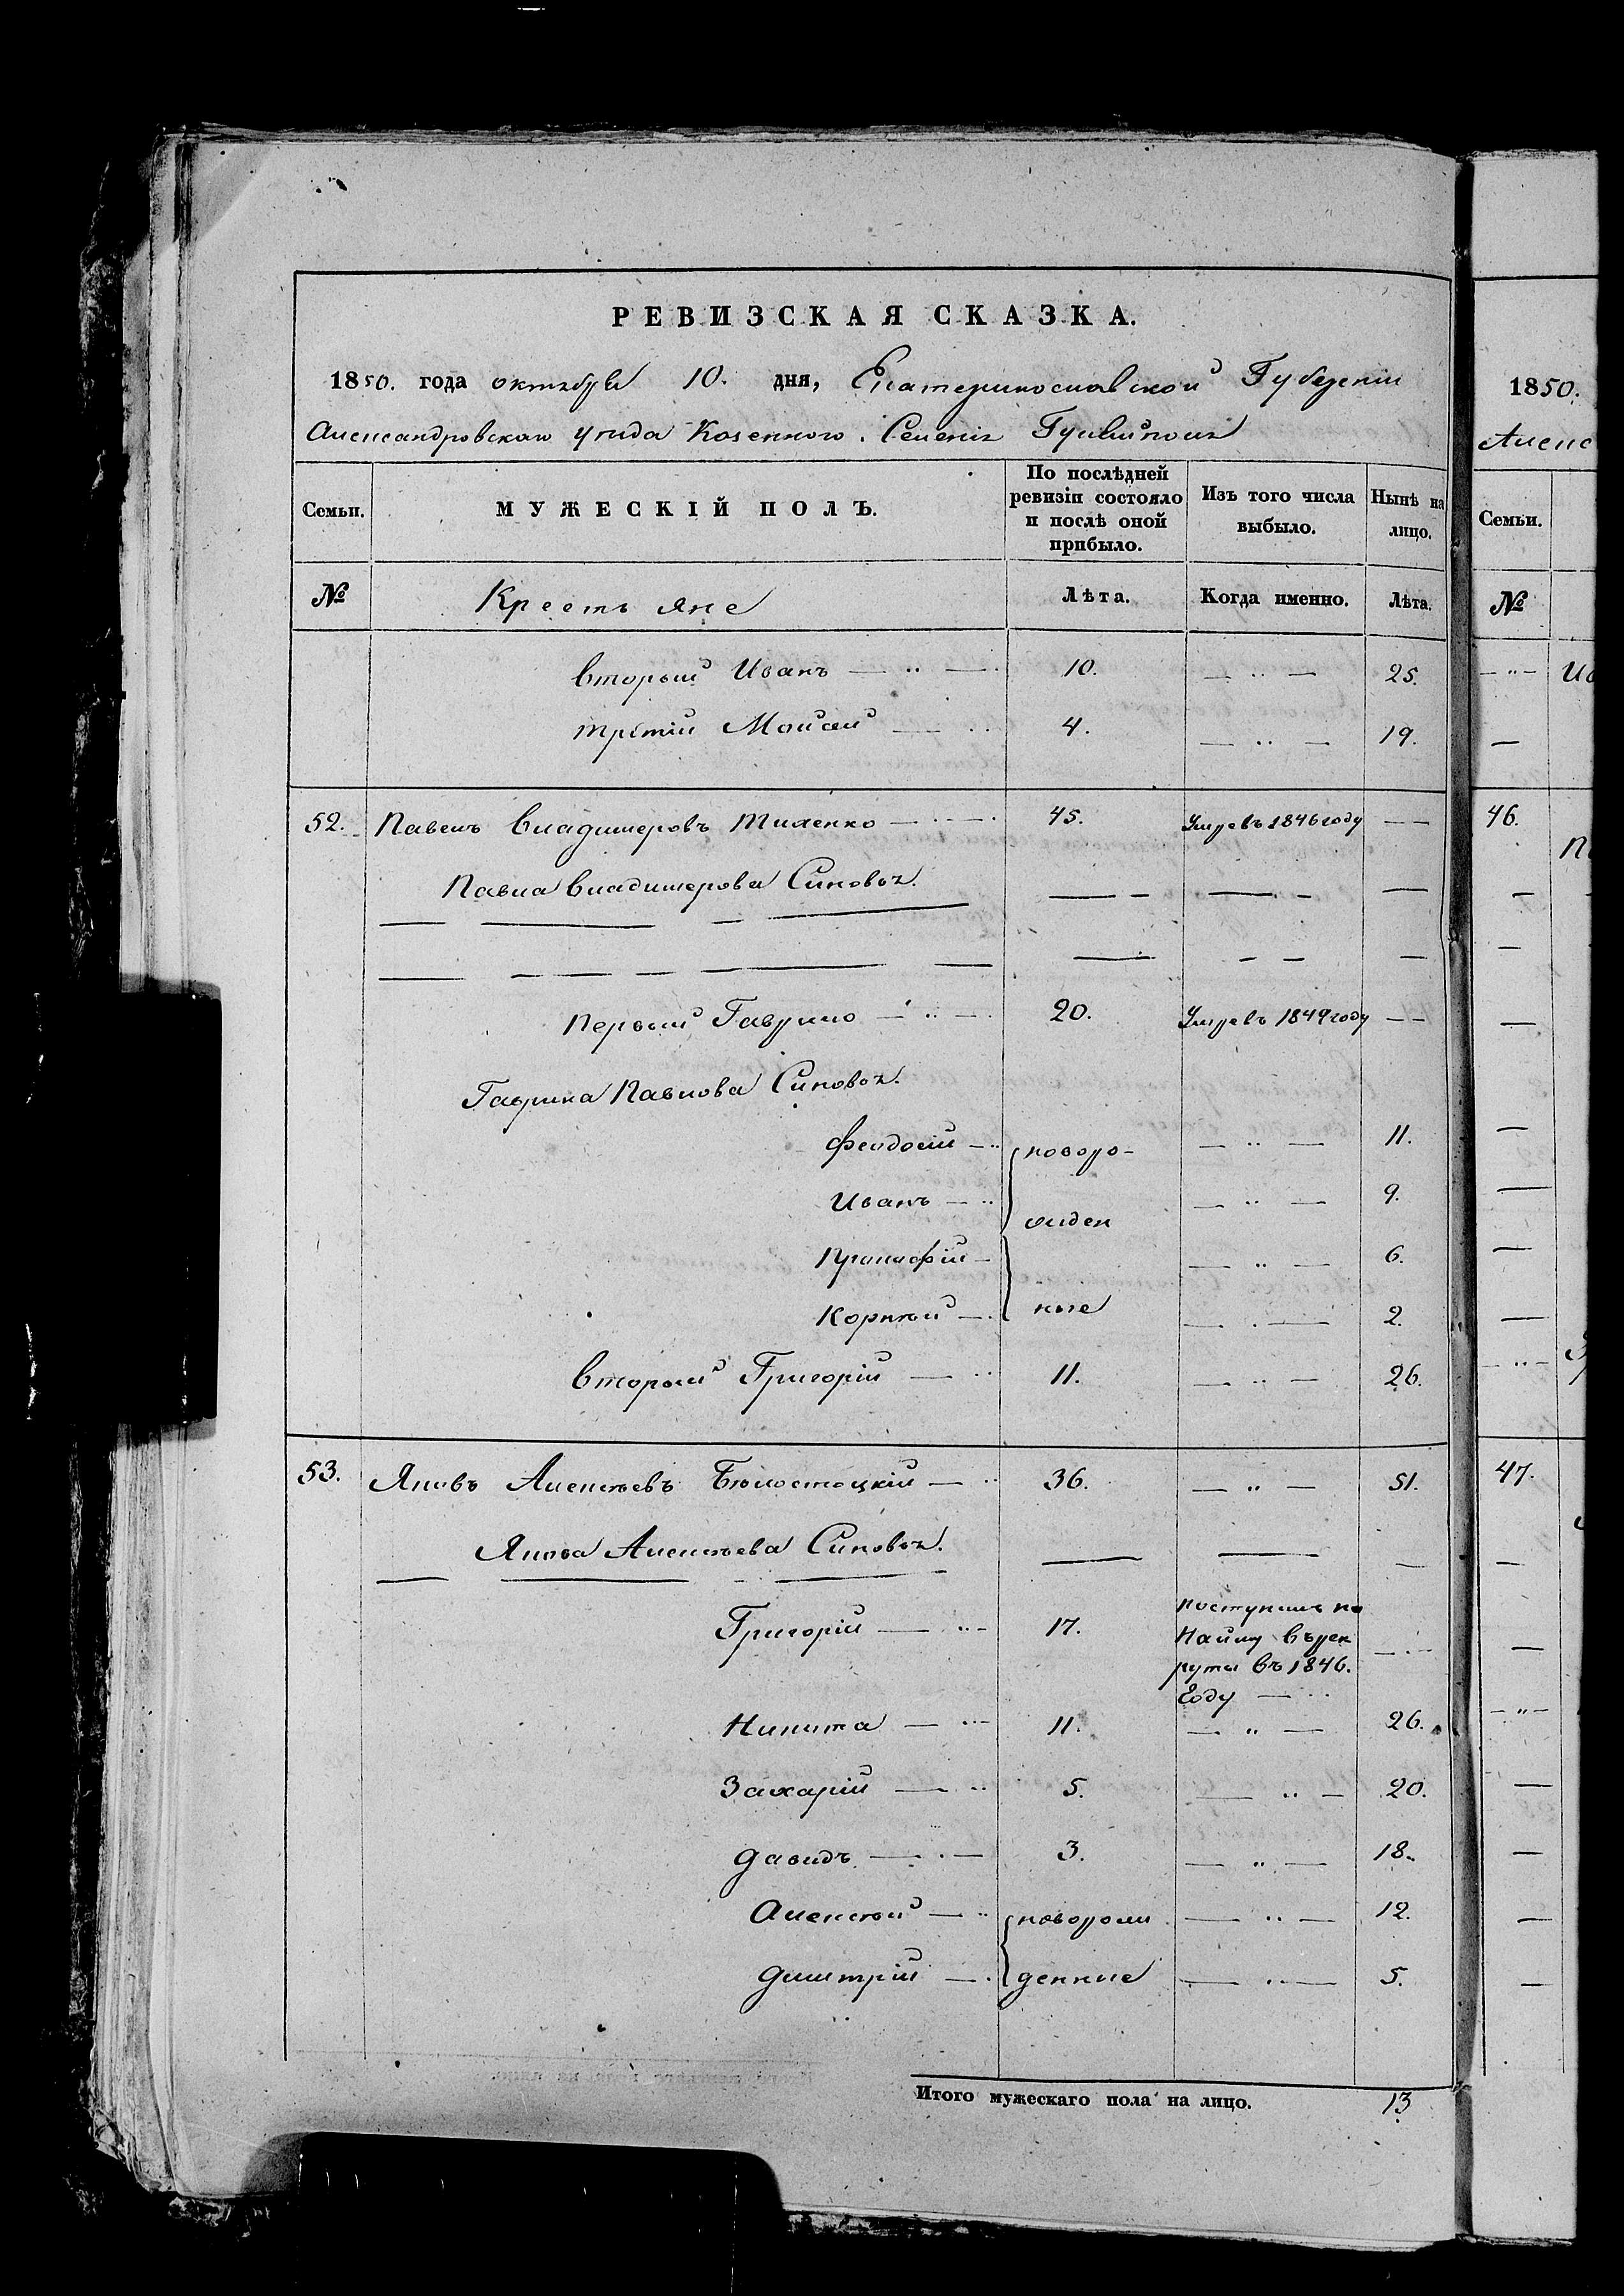 РЕВИЗСКАЯ СКАЗКА.
1850. года октября 10. дня, Екатеринославской Губерніи
Александровскаго уезда Казенного Селенія Гуляйполя
Семьи. МУЖЕСКІЙ ПОЛЪ. По послѣдней ревизіи состояло и послѣ оной прибыло. Изъ того числа выбыло. Нынѣ на лицо.
№ Крестьяне Лѣта. Когда именно. Лѣта.
вторый Иванъ — „ — 10. — „ — 25.
третій Моисей — „ 4. — „ — 19.
52. Павелъ Владимеровъ Тихенко — 45. Умревъ 1846 году — —
Павла Владимерова Синовья.
первый Гаврило — „ — 20. Умревъ 1849 году — —
Гаврила Павлова Синовья.
Феодосій — „ новоро- — „ — 11.
Иванъ — „ — „ — 9.
жден
Прокофій — — „ — 6.
Корнѣй — ные — „ — 2.
вторый Григорій — „ 11. — „ — 26.
53. Яковъ Алексѣевъ Бѣлостоцкій — „ 36. — „ — 51.
Якова Алексѣева Синовья.
Григорій — „ — 17. поступилъ по
Найму въ рек
руты въ 1846.
году — „
Никита — „ — 11. — „ — 26.
Захарій — „ 5. — „ — 20.
Давидъ — „ — 3. — „ — 18.
Алексѣй — „ новорож — „ — 12.
Димитрій — „ денние — „ — 5.
Итого мужескаго пола на лицо. 13
1850.
Алекс
Семьи.
№
— „ — Ив
46.
47.